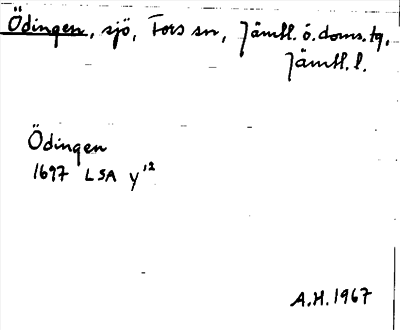 Ödingen, sjö, Fors sn, Jämtl. ö. doms. tg,
Jämtl. l.
Ödingen
1697 LSA Y¹²
A.H. 1967